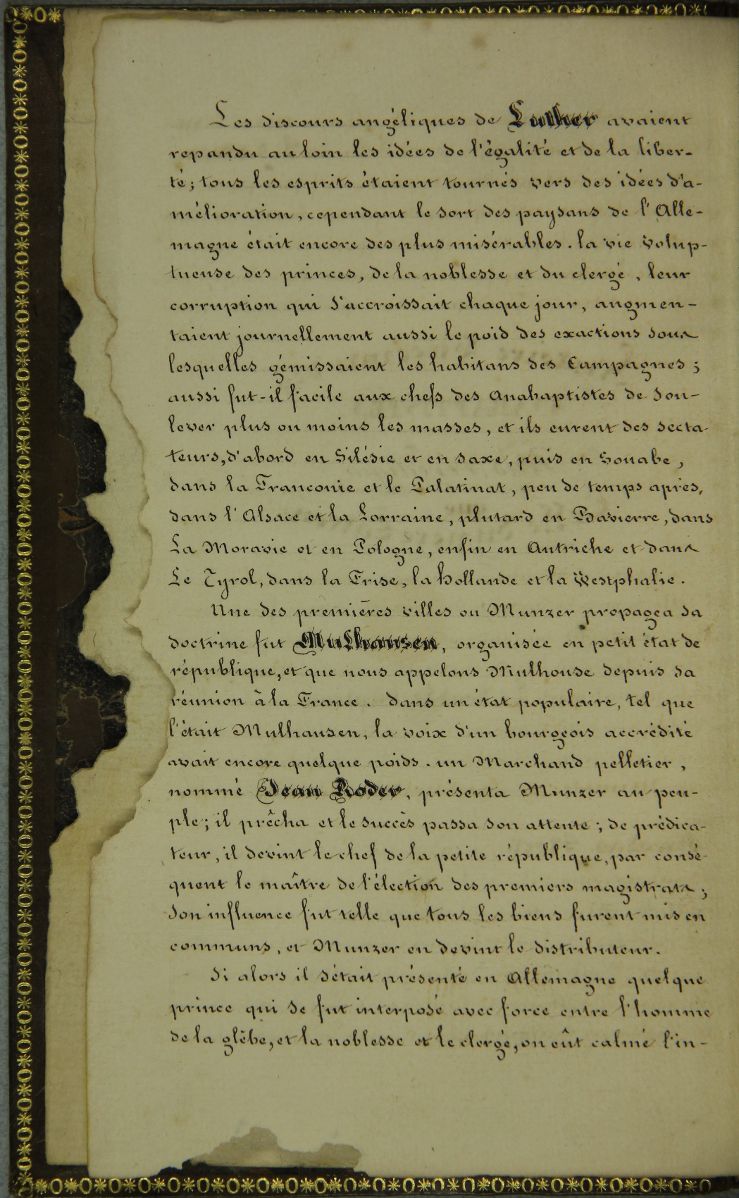 Les discours angéliques de Luther avaient
repandu au loin les idées de l'égalité et de la liber-
té; tous les esprits étaient tournés vers des idées d'a-
mélioration, cependant le sort des paysans de l'Alle-
magne était encore des plus misérables. la vie volup-
tueuse des princes, de la noblesse et du clergé, leur
corruption qui s'accroissait chaque jour, augmen-
taient journellement aussi le poid des exactions sous
lesquelles gémissaient les habitans des Campagnes;
aussi fut-il facile aux chefs des Anabaptistes de sou-
lever plus ou moins les masses, et ils eurent des secta-
teurs, d'abord en Silésie et en Saxe, puis en Souabe,
dans la Franconie et le Palatinat, peu de temps après,
dans l'Alsace et la Lorraine, plutard en Bavierre, dans
La Moravie et en Pologne, enfin en Autriche et dans
Le Tyrol, dans la Frise, la Hollande et la Westphalie.
Une des premières villes ou Munzer propagea sa
doctrine fut Mulhausen, organisée en petit état de
république, et que nous appelons Mulhouse depuis sa
réunion à la France. dans un état populaire, tel que
l'était Mulhausen, la voix d'un bourgeois accrédité
avait encore quelque poids. un Marchand pelletier,
nommé Jean Roder, présenta Munzer au peu-
ple; il prêcha et le succès passa son attente; de prédica-
teur, il devint le chef de la petite république, par consé-
quent le maître de l'élection des premiers magistrats;
son influence fut telle que tous les biens furent mis en
communs, et Munzer en devint le distributeur.
Si alors il s'était présenté en Allemagne quelque
prince qui se fut interposé avec force entre l'homme
de la glèbe, et la noblesse et le clergé, on eût calmé l'in-